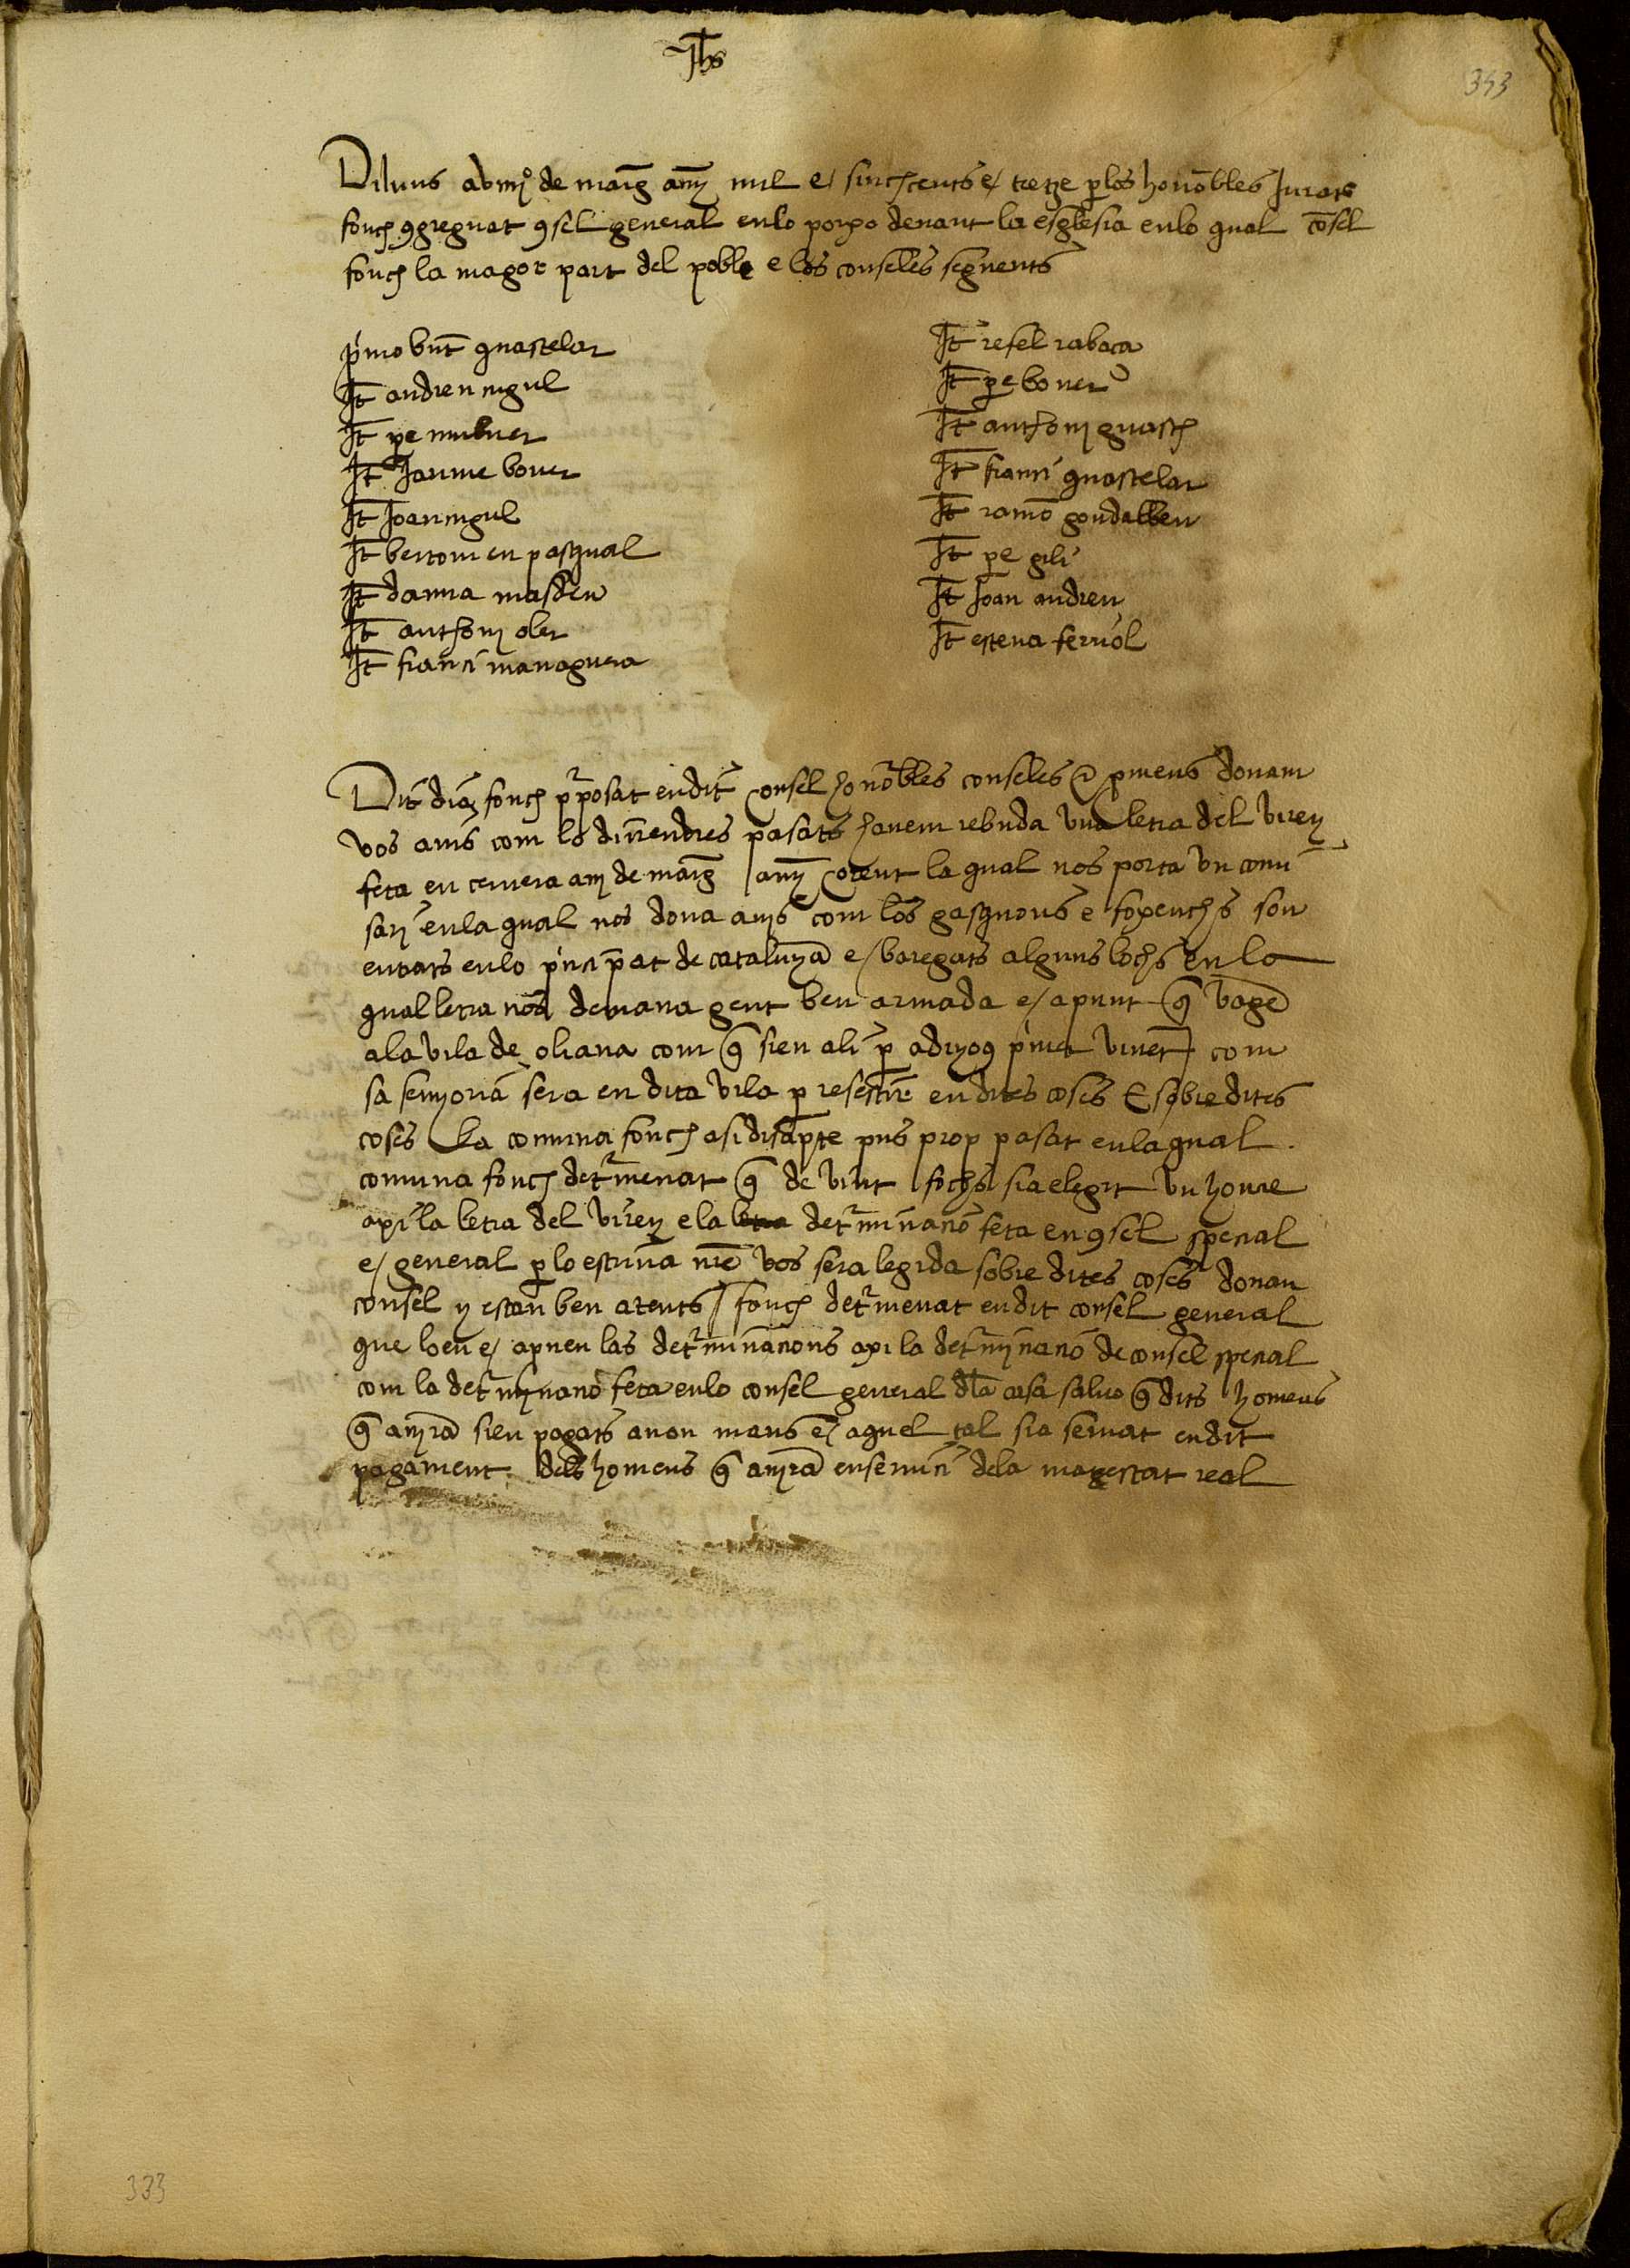 Jhs
353
Diluns a bıııȷº de març anẏ mil e sinchcents e tretze p los honōbles Jurats
fonch ꝯgreguat ꝯsel general en lo porxo denant la esglesia en lo qual cōsel
fonch la magor part del poble e los conseles seguents
pᵢmo bnt guastelar
It andreu ingul
It pe muluer
It Jaume bouer
It Joan ingul
It bertomeu pasqual
It damia masdeu
It anthonj oler
It franci managuera
It refel rabaca
It pe bouer
It anthonj guasch
It franci guastelar
It ramō gondalbeu
It pe gili
It Joan andreu
It esteua ferriol
Dit dia fonch pposat en dit consel honōbles conseles e promens donam
vos auis com lo diuendres pasats hauem rebuda vna letra del virey
feta en ceruera a nj de març anẏ corent la qual nos porta vn comi
sarj en la qual nos dona auis com los gasquons e foxenchs son
entrats en lo pincipat de cataluṅa e baregats alguns lochs en la
qual letra nos demana gent ben armada e apunt q̄ vagē
a la vila de oliana com q̄ sien ali p a dijous pimer vinēt com
sa senyoria sera en dita vila p resestir en dites coses E sobre dites
coses la comuna fonch asi disapte pus prop pasat en la qual
comuna fonch detmenat q̄ de vint fochs sia elegit vn home
axi la letra del virey e la letra detminacio feta en ꝯsel special
e general p lo escriua nre vos sera legida sobre dites coses donau
consel y estau ben atents / fonch detmenat en dit consel general
que loen e apuen las detminacions axi la detminacio de consel special
com la detminacio feta en lo consel general dla casa saluo q̄ dits homens
q̄ anirā sien pagats a non mans e aquel tal sia seruat en dit
pagament dels homens q̄ anirā en seruici de la magestat real
333